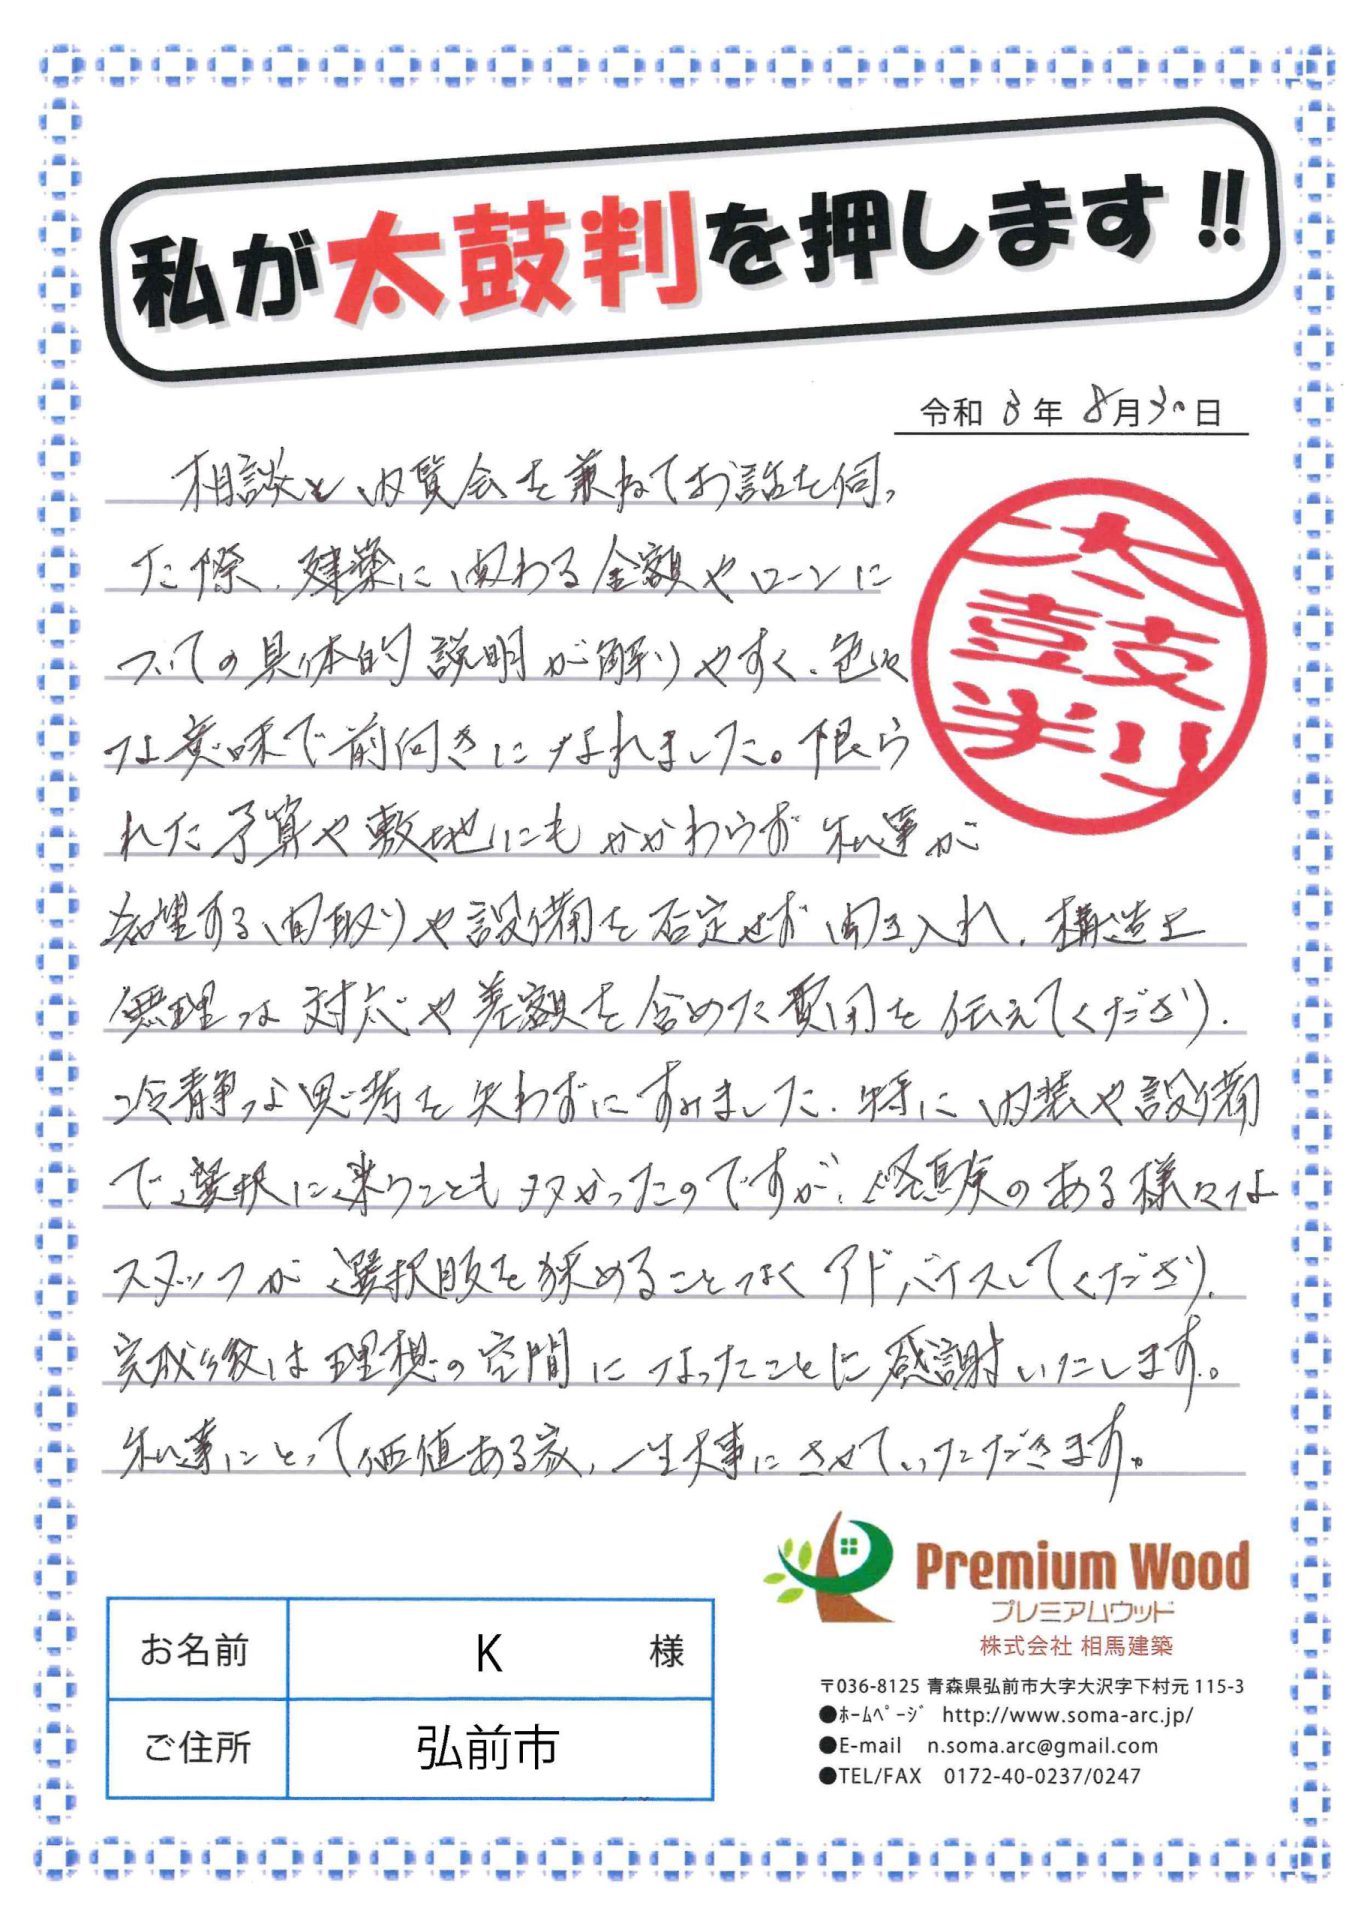 私が太鼓判を押します!!
令和 3年 8月30日
相談と内覧会を兼ねてお話を伺っ
た際、建築に関わる金額やローンに
ついての具体的説明が解りやすく、色々
な意味で前向きになれました。限ら
れた予算や敷地にもかかわらず私達が
希望する間取りや設備を否定せず聞き入れ、構造上
無理な対応や差額を含めた費用を伝えてくださり、
冷静な思考を失わずにすみました。特に内装や設備
で選択に迷うことも多かったのですが、経験のある様々な
スタッフが選択肢を狭めることなくアドバイスしてくださり、
完成後は理想の空間になったことに感謝いたします。
私達にとって価値ある家、一生大事にさせていただきます。
太鼓判
Premium Wood
プレミアムウッド
株式会社 相馬建築
〒036-8125 青森県弘前市大字大沢字下村元 115-3
●ﾎｰﾑﾍﾟｰｼﾞ http://www.soma-arc.jp/
●E-mail n.soma.arc@gmail.com
●TEL/FAX 0172-40-0237/0247
お名前 K 様
ご住所 弘前市